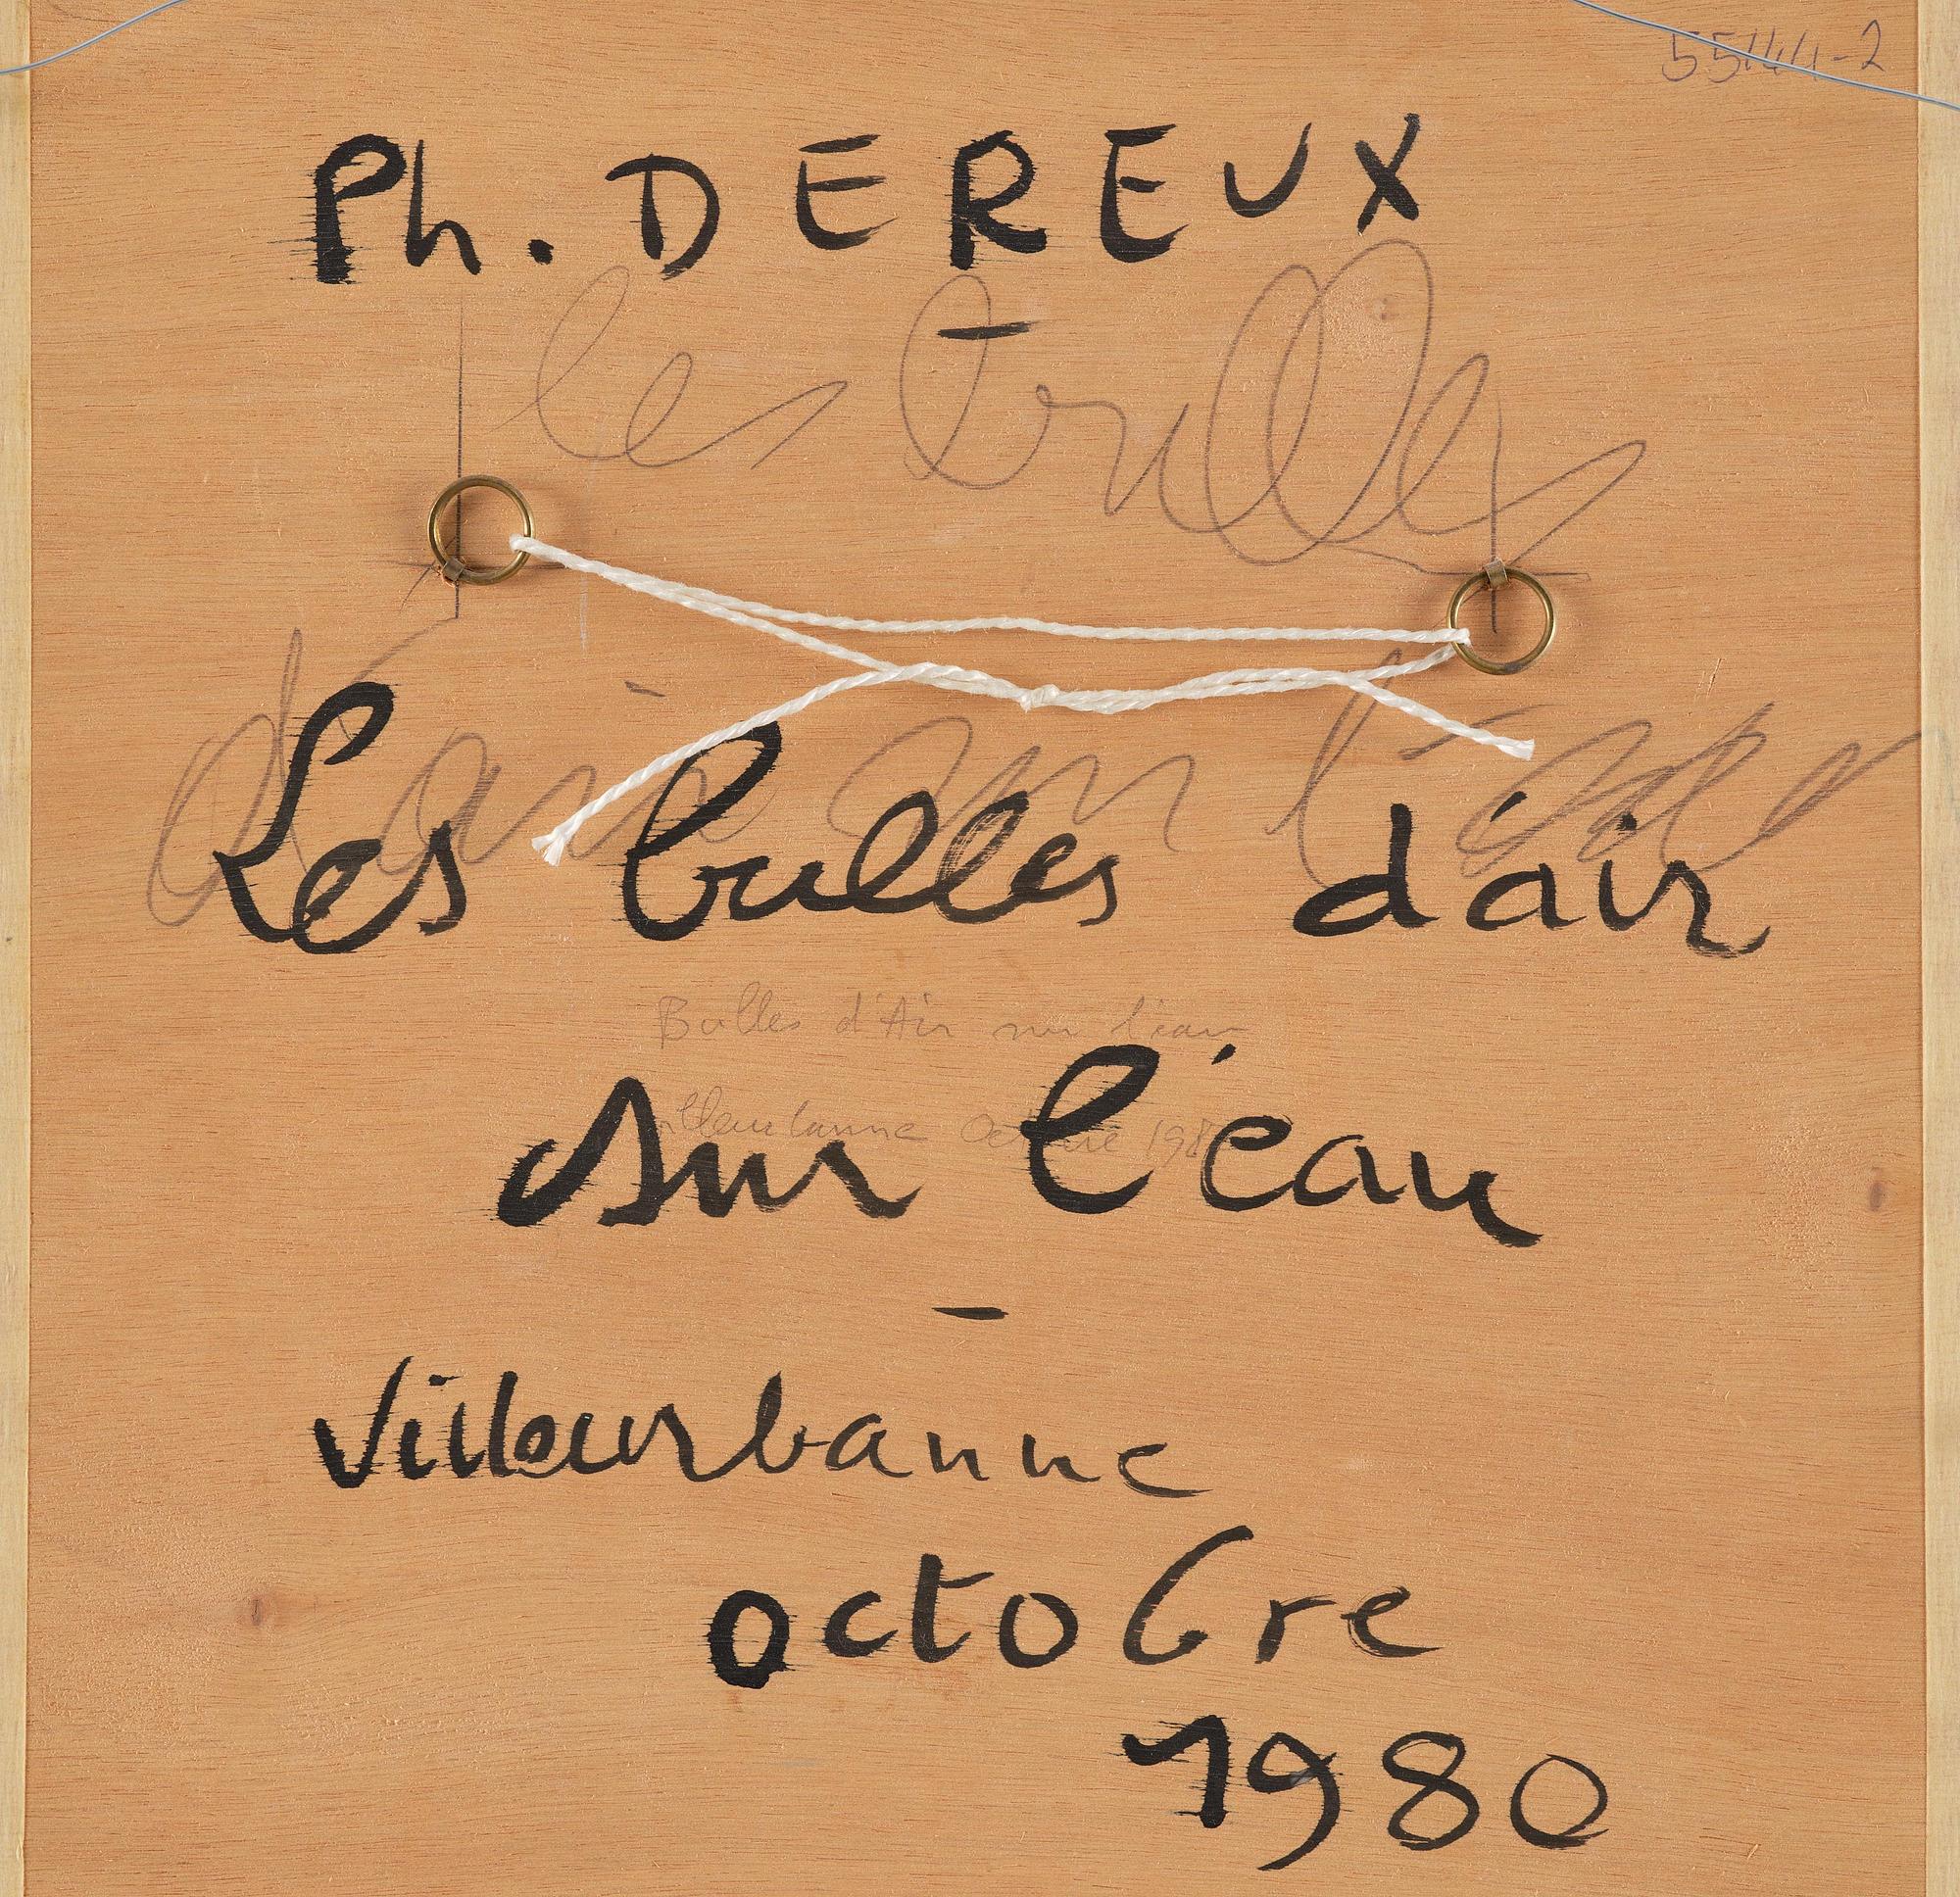 55144-2
Ph. DEREUX
les bulles
d'air sur l'eau
Les bulles d'air
Bulles d'Air sur l'eau
sur l'eau
Villeurbanne Octobre 1980
Villeurbanne
octobre
1980